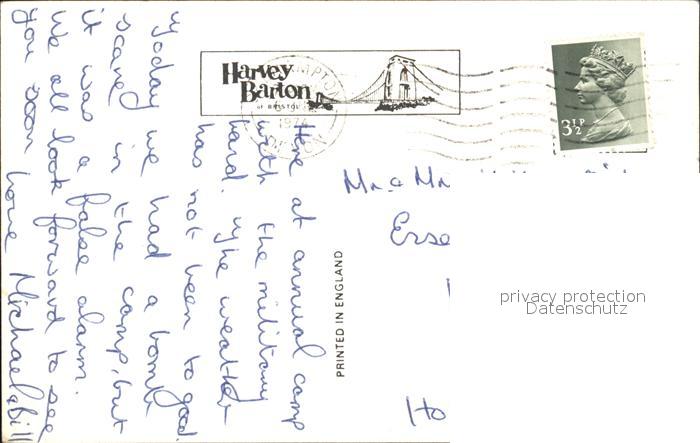 Harvey
Barton
OF BRISTOL
1974
3½P
Here at annual camp
with the military
band. The weather
has not been to good.
Today we had a bomb
scare in the camp, but
it was a false alarm.
We all look forward to see
you soon love Michael & Bill
PRINTED IN ENGLAND
Mr & Mr
privacy protection
Datenschutz